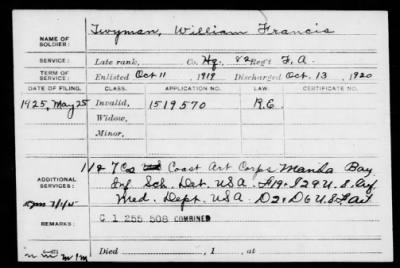 NAME OF SOLDIER: Twyman, William Francis
SERVICE: Late rank, Co. Hq. 82 Reg't F. A.
TERM OF SERVICE: Enlisted Oct 11, 1919 Discharged Oct. 13, 1920
DATE OF FILING. CLASS. APPLICATION NO. LAW. CERTIFICATE NO.
1925, May 25 Invalid, 1519570
Widow,
Minor,
ADDITIONAL SERVICES: 11 & 7 Co Coast Art Corps Manila Bay
Inf Sch. Det. U.S.A. U.S. Inf
Med. Dept. U.S.A.
REMARKS: C 1 255 508 COMBINED
Died , 1 , at